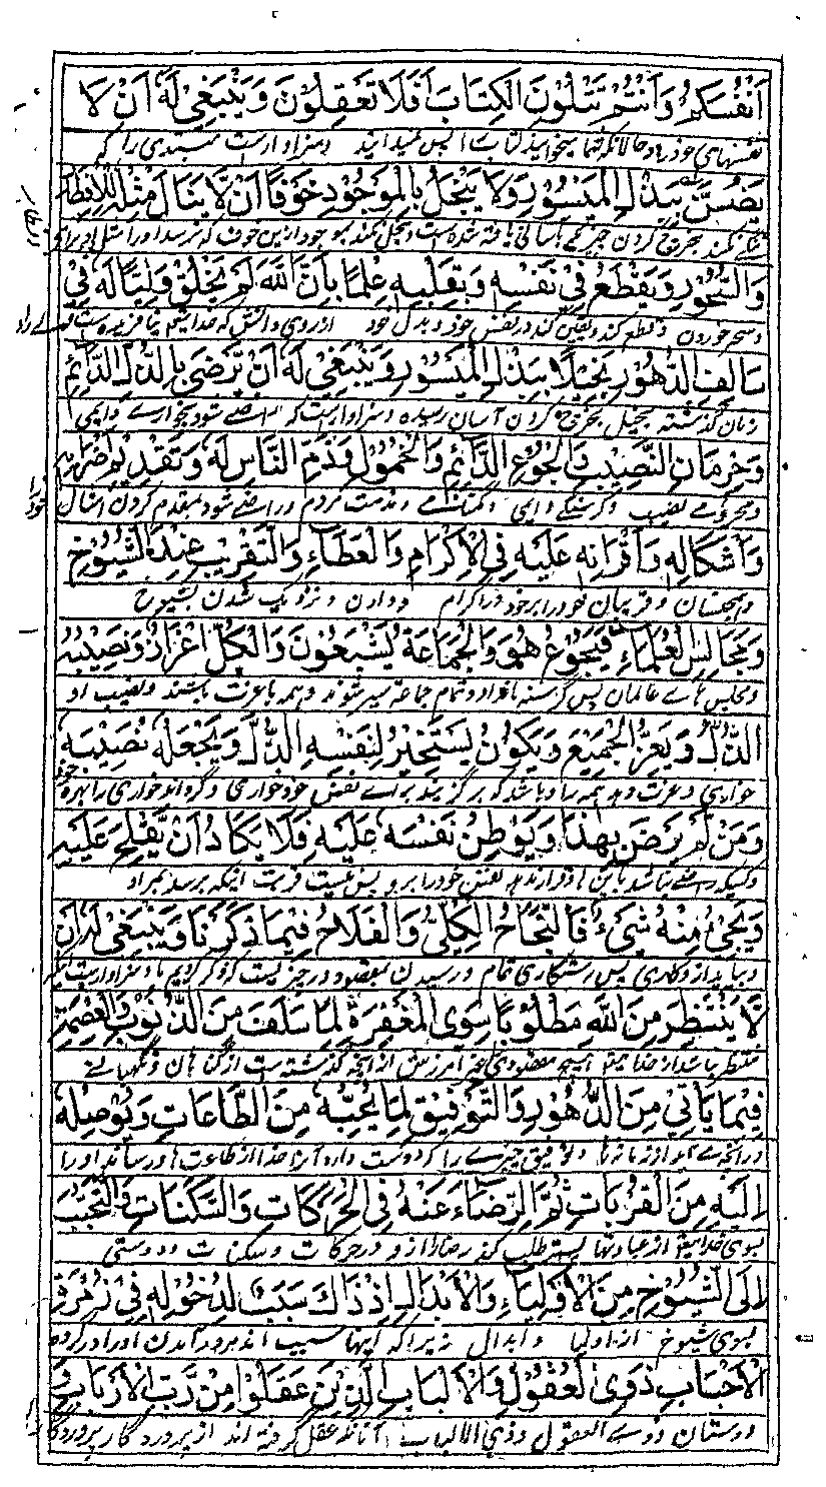 اَنْفُسَكُمْ وَاَنْتُمْ تَتْلُوْنَ الْكِتَابَ اَفَلَا تَعْقِلُوْنَ وَيَنْبَغِيْ لَهٗ اَنْ لَا
نفسهای خود را و حالانکه شما میخوانید کتاب را پس نمیدانید و سزاوارست مبتدی را که
يَضُنَّ بِبَذْلِ الْمَيْسُوْرِ وَلَا يَبْخَلَ بِالْمَوْجُوْدِ خَوْفًا اَنْ لَّا يَنَالَ مِثْلَهٗ لِلْاِفْطَارِ
کند بخرچ کردن چیزی که بآسانی یافته شده است و بخل نکند بموجود ازین خوف که نرسد او را مثل او برای
وَالسُّحُوْرِ وَيَقْطَعُ فِيْ نَفْسِهٖ وَبِقَلْبِهٖ عِلْمًا بِاَنَّ اللّٰهَ لَمْ يَخْلُقْ وَلِيًّا لَهٗ فِيْ
و سحر خوردن و قطع کند و یقین کند در نفس خود و بدل خود از روی دانش که خدا نیافریده است
سَالِفِ الدُّهُوْرِ بَخِيْلًا بِبَذْلِ الْمَيْسُوْرِ وَيَنْبَغِيْ لَهٗ اَنْ يَّرْضٰى بِالذُّلِّ الدَّائِمِ
زمان گذشته بخیل بخرچ کردن آسان رسیده و سزاوارست که راضی شود بخواری دایمی
وَحِرْمَانِ النَّصِيْبِ وَالْجُوْعِ الدَّائِمِ وَالْخُمُوْلِ وَذَمِّ النَّاسِ لَهٗ وَتَقْدِيْمِ اَضْرَابِهٖ
و محرومی نصیب و گرسنگی دایمی و گمنامی و مذمت مردم و راضی شود بمقدم کردن امثال خود را
وَاَشْكَالِهٖ وَاَقْرَانِهٖ عَلَيْهِ فِي الْاِكْرَامِ وَالْعَطَاءِ وَالتَّقْرِيْبِ عِنْدَ الشُّيُوْخِ
و همجنسان و قرینان خود را بر خود در اکرام و دادن و نزدیک شدن بشیوخ
وَمَجَالِسِ الْعُلَمَاءِ فَيَجُوْعُ هُوَ وَالْجُمَاعَةُ يَشْبَعُوْنَ وَالْكُلُّ اَعِزَّاءُ وَنَصِيْبُهٗ
و مجلس های عالمان پس گرسنه باشد او و تمام جماعة سیر شوند و همه باعزت باشند و نصیب او
الذُّلُّ وَيُعِزُّ الْجَمِيْعَ وَيَكُوْنُ يَسْتَخِيْرُ لِنَفْسِهِ الذُّلَّ وَيَجْعَلُهٗ نَصِيْبَهٗ
خواری و عزت دهد همه را و باشد که برگزیند برای نفس خود خواری و گرداند خواری را بهره خود
وَمَنْ لَّمْ يَرْضَ بِهٰذَا وَيُوَطِّنْ نَفْسَهٗ عَلَيْهِ فَلَا يَكَادُ اَنْ يُّفْلِحَ عَلَيْهِ
و کسیکه راضی نباشد باین و قرار ندهد نفس خود را برو پس نیست قریب اینکه برسد بمراد
وَيَجِيْءُ مِنْهُ شَيْءٌ فَالنَّجَاحُ الْكُلِّيُّ وَالْفَلَاحُ فِيْمَا ذَكَرْنَا وَيَنْبَغِيْ لَهٗ اَنْ
و بیاید ازو کاری پس رستگاری تمام و رسیدن بمقصود در چیزیست که ذکر کردیم ما و سزاوارست اینکه
لَّا يَنْتَظِرَ مِنَ اللّٰهِ مَطْلُوْبًا سِوَى الْمَغْفِرَةِ لِمَا سَلَفَ مِنَ الذُّنُوْبِ وَالْعِصْمَةِ
منتظر نباشد از خدا هیچ مقصودی غیر آمرزش از آنچه گذشته است از گناهان و نگهبانی
فِيْمَا يَاْتِيْ مِنَ الدُّهُوْرِ وَالتَّوْفِيْقِ لِمَا يُحِبُّهٗ مِنَ الطَّاعَاتِ وَيُوْصِلُهٗ
در آنچه می آید از زمانها و توفیق چیزی را که دوست دارد آنرا خدا از طاعت ها و رساند او را
اِلَيْهِ مِنَ الْقُرُبَاتِ ثُمَّ الرِّضَاءَ عَنْهُ فِي الْحَرَكَاتِ وَالسَّكَنَاتِ وَالتَّحَبُّبَ
بسوی خدا از عبادتها پستر طلب کند رضا را ازو در حرکات و سکنات و دوستی
اِلَى الشُّيُوْخِ مِنَ الْاَوْلِيَاءِ وَالْاَبْدَالِ اِذْ ذَاكَ سَبَبٌ لِدُخُوْلِهٖ فِيْ زُمْرَةِ
بسوی شیوخ از اولیا و ابدال زیرا که اینها سبب اند در آمدن او را در گروه
الْاَحْبَابِ ذَوِي الْعُقُوْلِ وَالْاَلْبَابِ الَّذِيْنَ عَقَلُوْا مِنْ رَّبِّ الْاَرْبَابِ وَ
دوستان ذوی العقول و ذوی الالباب آنانکه عقل گرفته اند از پروردگار پروردگاران